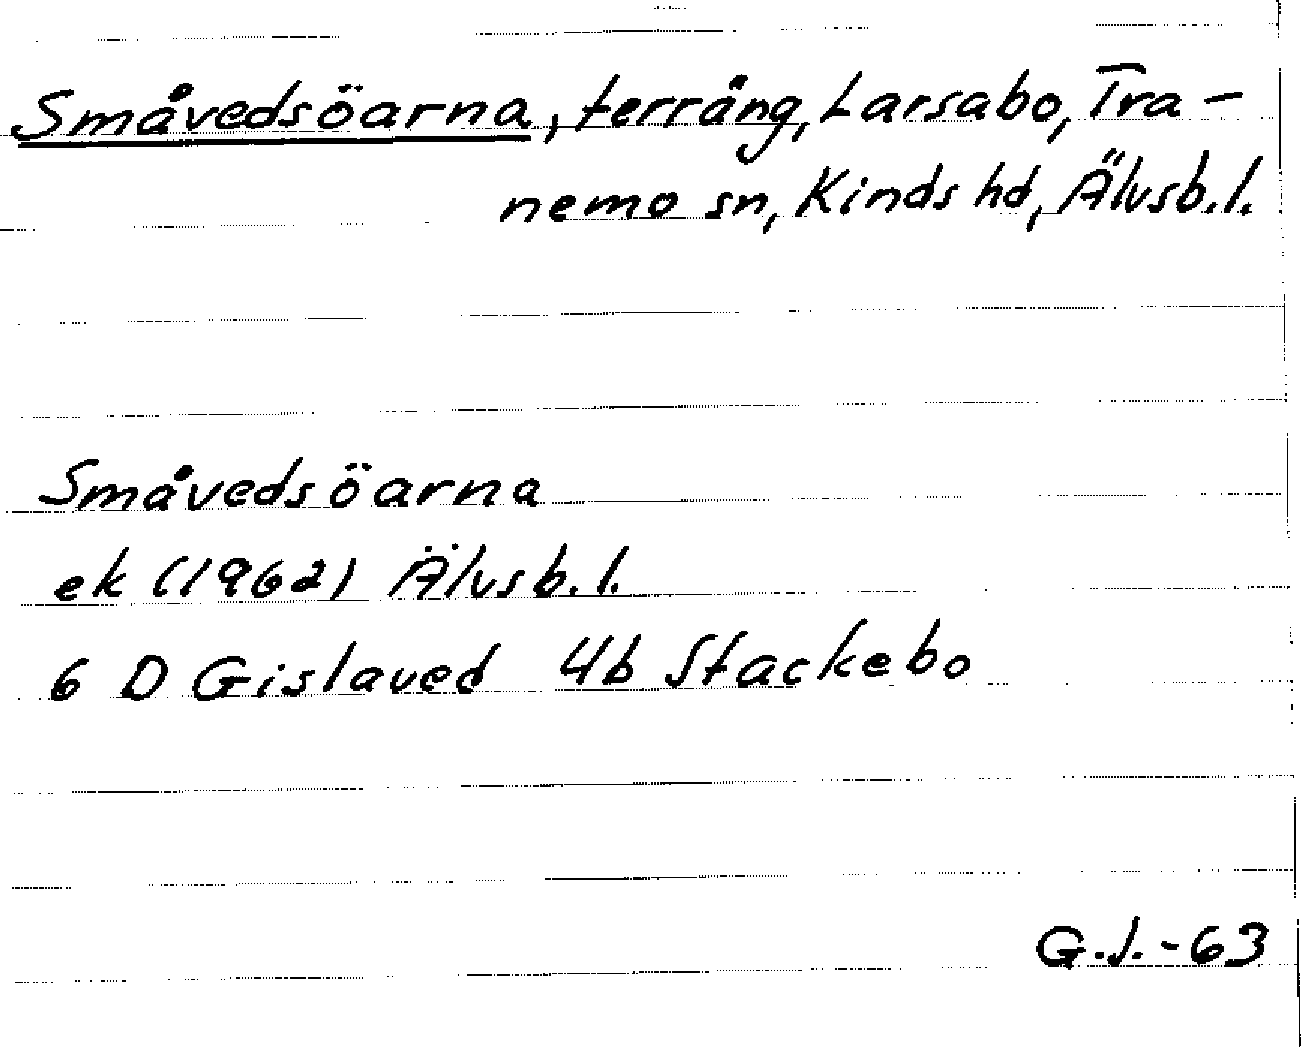 Småvedsöarna, terräng, Larsabo, Tra-
nemo sn, Kinds hd, Älvsb.l.
Småvedsöarna
ek (1962) Älvsb.l.
6 D Gislaved 4b Stackebo
G.J.-63